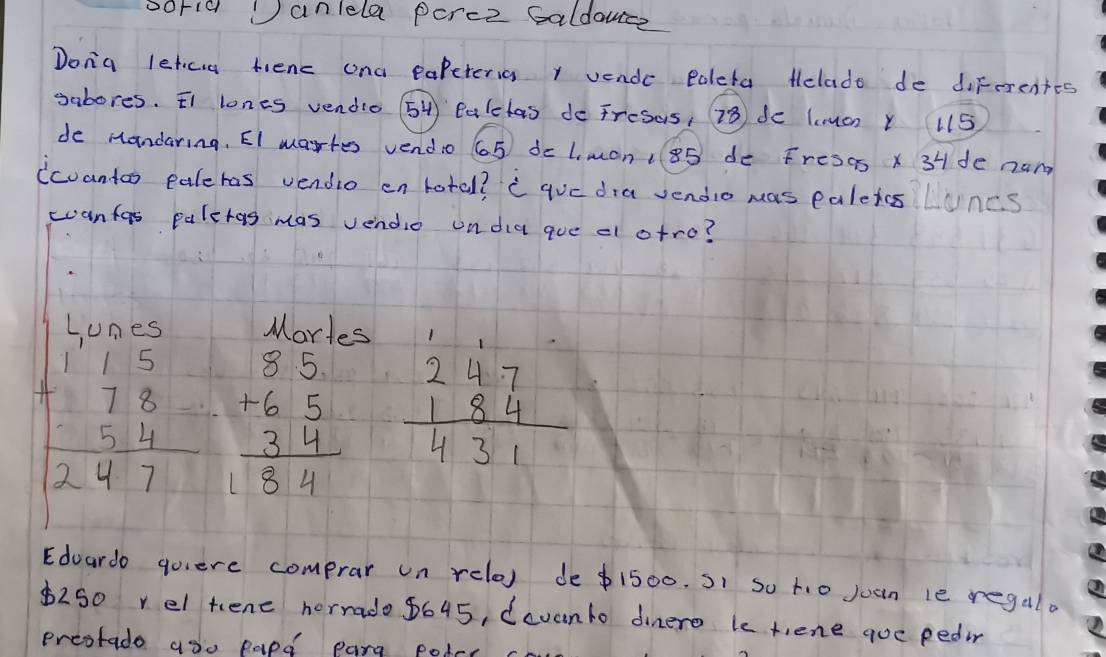 Sofia Daniela perez Saldaurez
Doña leticia tiene una papeteria y vende poleta Helado de diferentes
sabores. El lones vendio 54 paletas de fresas, 78 de limon y 115
de Mandarina. El martes vendio 65 de limon, 85 de fresas y 34 de nara
¿cuantas paletas vendio en total? ¿ que dia vendio mas paletas? Lunes
cuantas paletas mas vendio un dia que el otro?
Lunes Martes 1 1
115 85 247
+ 78 +65 184
54 34 431
247 184
Eduardo quiere comprar un reloj de $1500. si su tio juan le regalo
$250 y el tiene horrado $645, ¿cuanto dinero le tiene que pedir
prestado a su papá para poder